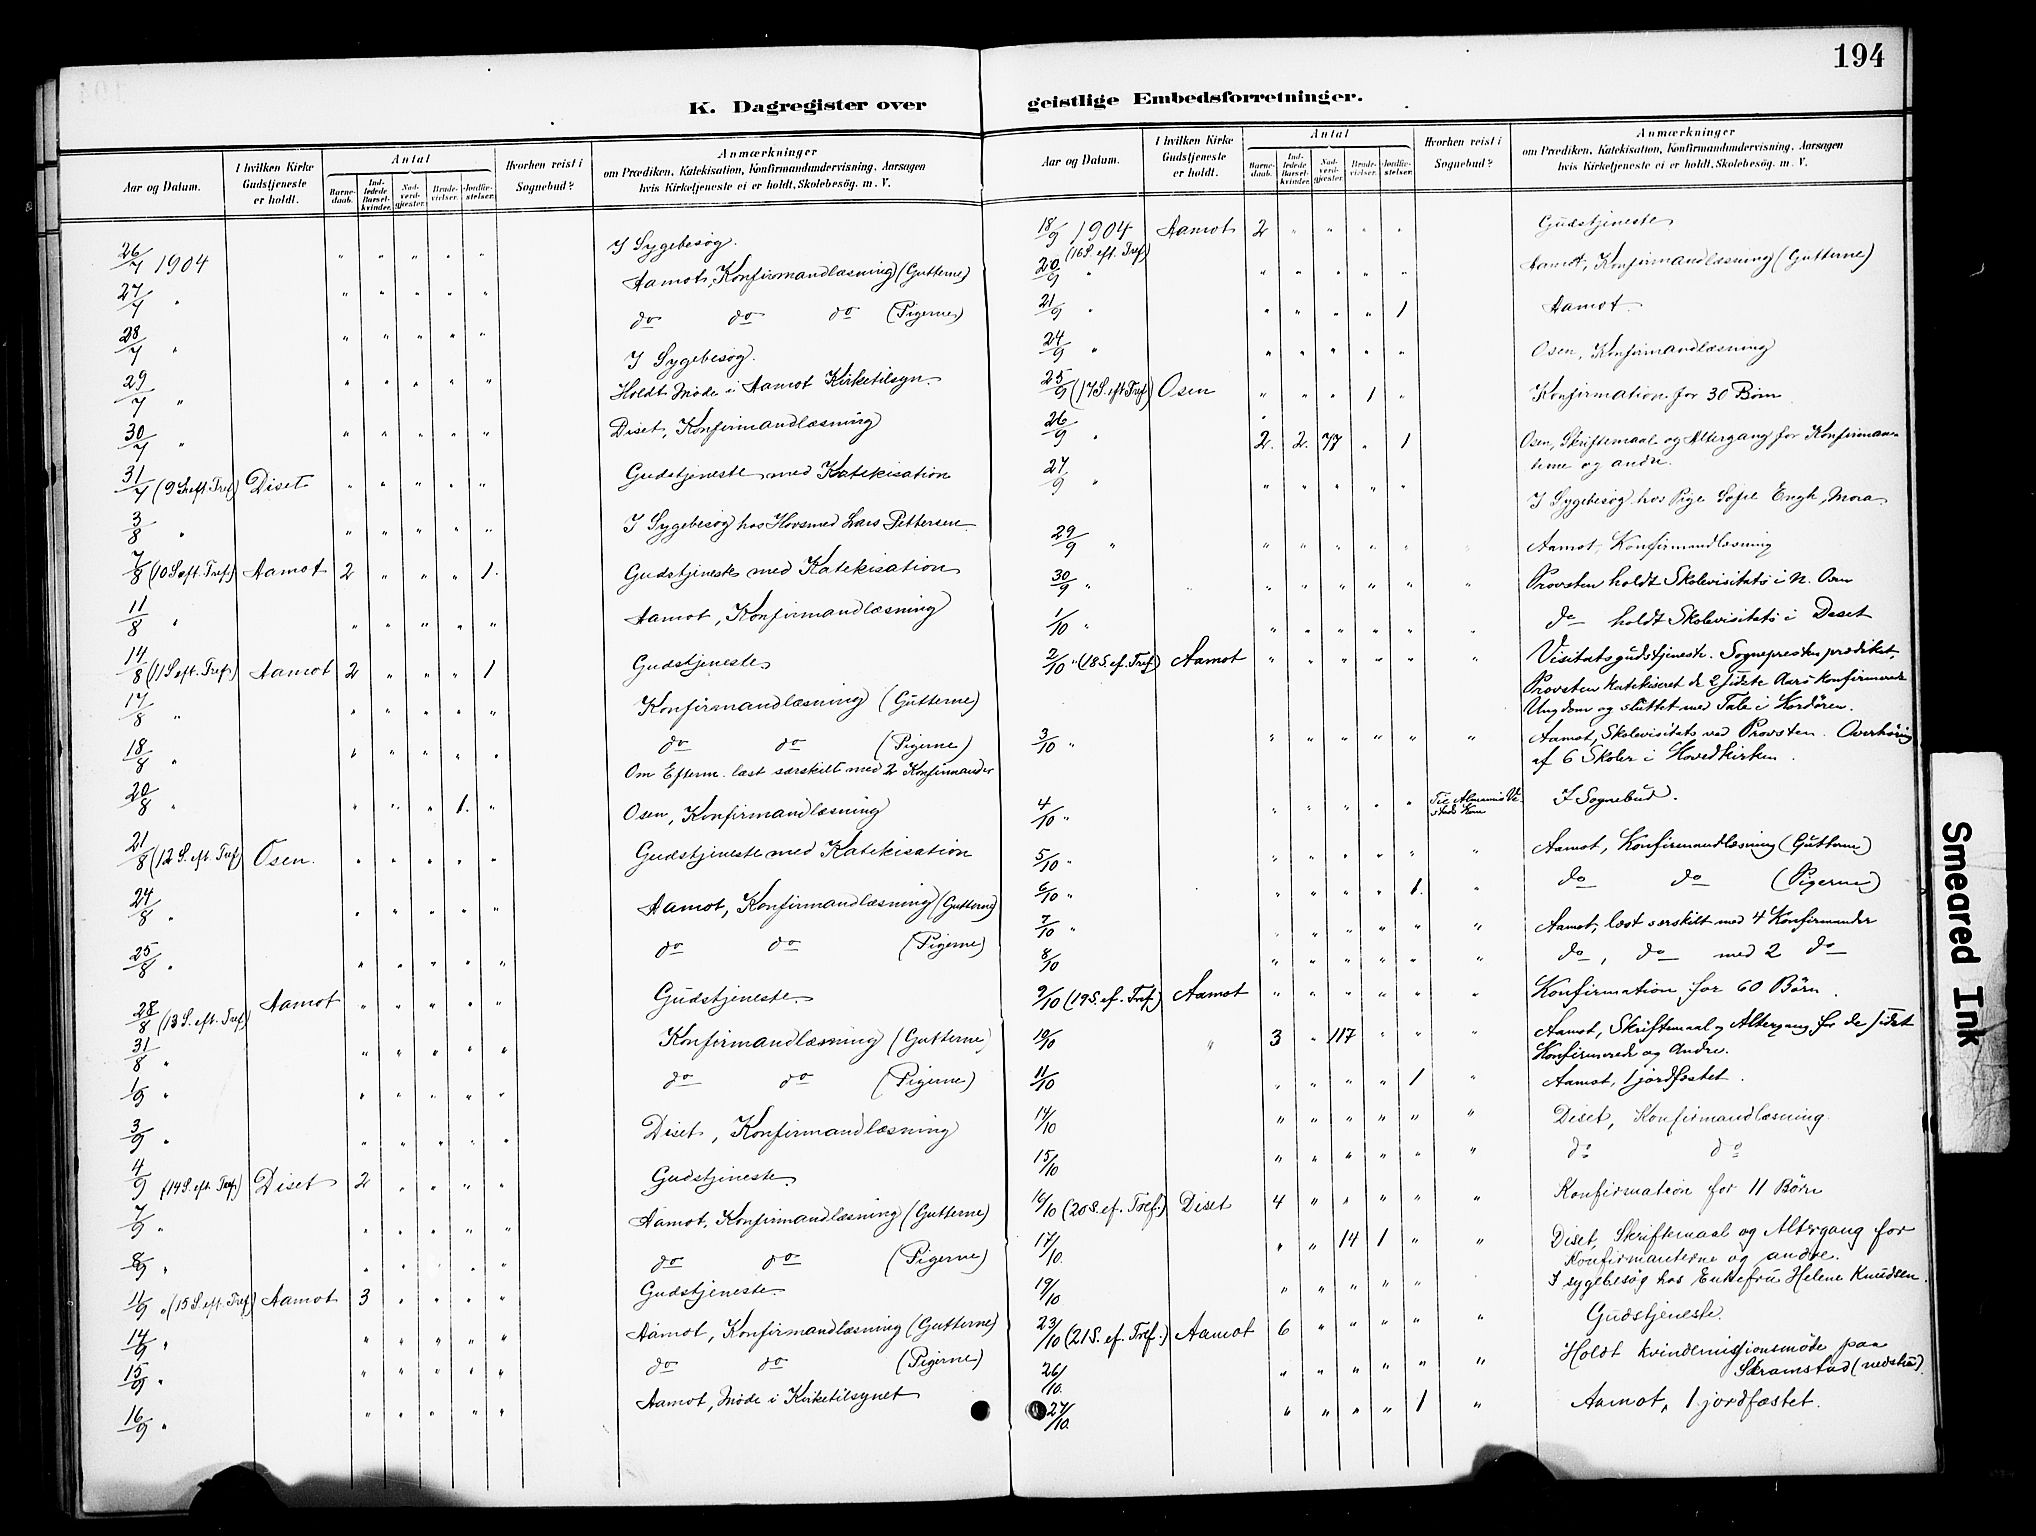 194
K. Dagregister over
geistlige Embedsforretninger.
Aar og Datum.
I hvilken Kirke Gudstjeneste er holdt.
Antal
Barne-daab.
Ind-ledede Barsel-kvinder.
Nad-verd-gjester.
Brude-vielser.
Jordfæ-stelser.
Hvorhen reist i Sognebud?
Anmærkninger
om Prædiken, Katekisation, Konfirmandundervisning, Aarsagen
hvis Kirketjeneste ei er holdt, Skolebesøg. m. V.
26/7 1904 " " " " " I Sygebesøg.
27/7 " " " " " " Aamot, Konfirmandlæsning (Gutterne)
28/7 " " " " " " do do do (Pigerne)
29/7 " " " " " " I Sygebesøg.
Holdt Møde i Aamot Kirketilsyn.
30/7 " " " " " " Diset, Konfirmandlæsning
31/7 (9 S. eft. Tref.) Diset " " " " " Gudstjeneste med Katekisation
3/8 " " " " " " I Sygebesøg hos Husmd Lars Pettersen
7/8 (10 S. eft. Tref.) Aamot 2 " " " 1. Gudstjeneste med Katekisation
11/8 " " " " " " Aamot, Konfirmandlæsning
14/8 (11 S. eft. Tref.) Aamot 2 " " " 1 Gudstjeneste
17/8 " " " " " " Konfirmandlæsning (Gutterne)
18/8 " " " " " " do do (Pigerne)
Om Efterm. læst særskilt med 2 Konfirmander
20/8 " " " " 1. " Osen, Konfirmandlæsning
21/8 (12 S. eft. Tref.) Osen. " " " " " Gudstjeneste med Katekisation
24/8 " " " " " " Aamot, Konfirmandlæsning (Gutterne)
25/8 " " " " " " do do (Pigerne)
28/8 (13 S. eft. Tref.) Aamot " " " " " Gudstjeneste
31/8 " " " " " " Konfirmandlæsning (Gutterne)
1/9 " " " " " " do do (Pigerne)
3/9 " " " " " " Diset, Konfirmandlæsning
4/9 (14 S. eft. Tref.) Diset 2 " " " " Gudstjeneste
7/9 " " " " " " Aamot, Konfirmandlæsning (Gutterne)
8/9 " " " " " " do do (Pigerne)
11/9 " (15 S. eft. Tref.) Aamot 3 " " " " Gudstjeneste
14/9 " " " " " " Aamot, Konfirmandlæsning (Gutterne)
15/9 " " " " " " do do (Pigerne)
16/9 " " " " " " Aamot, Møde i Kirketilsynet
Aar og Datum.
I hvilken Kirke Gudstjeneste er holdt.
Antal
Barne-daab.
Ind-ledede Barsel-kvinder.
Nad-verd-gjester.
Brude-vielser.
Jordfæ-stelser.
Hvorhen reist i Sognebud?
Anmærkninger
om Prædiken, Katekisation, Konfirmandundervisning, Aarsagen
hvis Kirketjeneste ei er holdt, Skolebesøg. m. V.
18/9 1904 Aamot 2 " " " " Gudstjeneste
(16 S. eft. Tref)
20/9 " " " " " " Aamot, Konfirmandlæsning (Gutterne)
21/9 " " " " " 1 Aamot.
24/9 " " " " " " Osen, Konfirmandlæsning
25/9 (17 S. eft Tref) Osen " " " 1 " Konfirmation for 30 Børn
26/9 " 2. 2. 77 " 1 Osen, Skriftemaal og Altergang for Konfirman-
terne og andre.
27/9 " " " " " " I Sygebesøg hos Pige Sofie Engh, Mora
29/9 " " " " " " Aamot, Konfirmandlæsning
30/9 " " " " " " " Provsten holdt Skolevisitats i N. Osen
1/10 " " " " " " " do holdt Skolevisitats i Deset
2/10 " (18 S. ef. Tref) Aamot " " " " " " Visitatsgudstjeneste. Sognepresten prædiket,
Provsten katekiseret de 2 sidste Aars konfirmerede
Ungdom og sluttet med Tale i Kordøren.
3/10 " " " " " " " Aamot, Skolevisitats ved Provsten. Overhøring
af 6 Skoler i Hovedkirken.
4/10 " " " " " " I Sognebud.
5/10 " " " " " " " Aamot, Konfirmandlæsning (Gutterne)
6/10 " " " " " 1. " do do (Pigerne)
7/10 " " " " " " " Aamot, læst særskilt med 4 Konfirmander
8/10 " " " " " " do, do med 2 do
9/10 (19 S. ef. Tref.) Aamot " " " " " " Konfirmation for 60 Børn.
10/10 " 3 " 117 " " " Aamot, Skriftemaal og Altergang for de sidst
Konfirmerede og Andre.
11/10 " " " " 1 " Aamot, 1 jordfæstet.
14/10 " " " " " " Diset, Konfirmandlæsning.
15/10 " " " " " " do do
16/10 (20 S. ef. Tref.) Diset 4 " " " " " Konfirmation for 11 Børn
17/10. " " 14 1 " " Diset, Skriftemaal og Altergang for
Konfirmanterne og andre.
19/10 " " " " " I sygebesøg hos Enkefru Helene Knudsen.
23/10 (21 S. ef. Tref.) Aamot 6 " " " " " Gudstjeneste.
26/10. " " " " " " Holdt kvindemissionsmøde paa
Skramstad (nedstu).
27/10. " " " " 1 " Aamot, 1 jordfæstet.
Smeared Ink